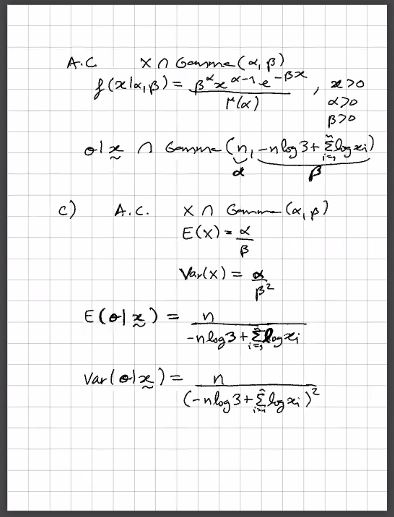 A.C X ∩ Gamma (α, β)
f(x|α, β) = β^α x^(α-1) e^(-βx) / Γ(α) , x>0
α>0
β>0
θ|x ∩ Gamma (n, -nlog3 + Σ_{i=1}^n log xi)
α β
c) A.C. X ∩ Gamma (α, β)
E(X) = α/β
Var(X) = α/β²
E(θ|x) = n / (-nlog3 + Σ_{i=1}^n log xi)
Var(θ|x) = n / (-nlog3 + Σ_{i=1}^n log xi)²